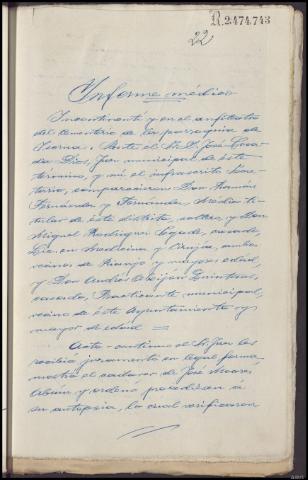 R.2.474.743
22
Informe médico
Incontinente y en el anfiteatro
del Cementerio de la parroquia de
Ante el Sr. D. José
da Dios, Juez municipal de éste
término, y mi el infrascrito Secre-
tario, comparecieron Don Ramón
Fernández y Fernández, Médico ti-
tular de éste distrito, soltero, y Don
Miguel Rodríguez casado,
Lic. en Medicina y Cirujía, ambos
vecinos de y mayores de edad,
y Don Andrés Quintas,
casado, Practicante municipal,
vecino de éste Ayuntamiento y
mayor de edad =
Acto continuo el Sr. Juez les
recibió juramento en legal forma,
mostró el cadáver de José
y ordenó procediesen á
su autopsia, la cual verificaron